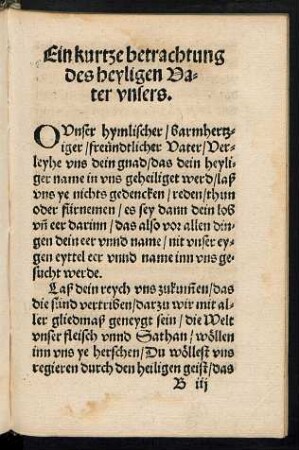 Ein kurtze betrachtung
des heyligen Va-
ter vnsers.
O Vnser hymlischer/barmhertz-
iger/freündtlicher Vater/Ver-
leyhe vns dein gnad/das dein heyli-
ger name in vns geheiliget werd/laß
vns ye nichts gedencken/reden/thun
oder fürnemen/es sey dann dein lob
vñ eer darinn/das also vor allen din-
gen dein eer vnnd name/nit vnser ey-
gen eyttel eer vnnd name inn vns ge-
sucht werde.
Laß dein reych vns zukum̃en/das
die sünd vertriben/darzu wir mit al-
ler gliedmaß geneygt sein/die Welt
vnser fleisch vnnd Sathan/wöllen
inn vns ye herschen/Du wöllest vns
regieren durch den heiligen geist/das
B iij